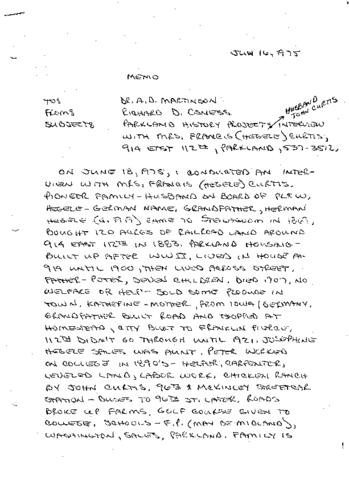 JUN 16, 1975
MEMO
TO: DR. A.D. MARTINSON
HUSBAND
JOHN CURTIS
FROM: RICHARD D. OSNESS
SUBJECT: PARKLAND HISTORY PROJECT: INTERVIEW
WITH MRS. FRANCIS (HEGELE) CURTIS,
914 EAST 112TH, PARKLAND, 537-3512,
ON JUNE 18, 1975, I CONDUCTED AN INTER-
VIEW WITH MRS. FRANCIS (HEGELE) CURTIS.
PIONEER FAMILY - HUSBAND ON BOARD OF PL&W,
HEGELE - GERMAN NAME, GRANDFATHER, HERMAN
HEGELE CAME TO STEILACOOM IN
BOUGHT 120 ACRES OF RAILROAD LAND AROUND
914 EAST 112TH IN 1883. PARKLAND HOUSING -
BUILT UP AFTER WW II. LIVED IN HOUSE AT
914 UNTIL 1900, THEN LIVED ACROSS STREET.
FATHER - PETER, SEVEN CHILDREN, DIED 1907, NO
WELFARE OR HELP - SOLD SOME PRODUCE IN
TOWN. KATHERINE - MOTHER, FROM IOWA/GERMANY.
GRANDFATHER BUILT ROAD AND STOPPED AT
HOMESTEAD, CITY BUILT TO FRANKLIN PIERCE,
112TH DIDN'T GO THROUGH UNTIL 1921. JOSEPHINE
HEGELE SALES WAS AUNT. PETER WORKED
ON COLLEGE IN 1890'S - HELPER, CARPENTER,
LEVELED LAND, LABOR WORK. CHICKEN RANCH
BY JOHN CURTIS. 96TH & MCKINLEY STREETCAR
STATION - BUSES TO 96TH ST. LATER, ROADS
BROKE UP FARMS. GOLF COURSE GIVEN TO
COLLEGE. SCHOOLS - F.P. (MAY BE MIDLAND),
WASHINGTON, SALES, PARKLAND. FAMILY IS